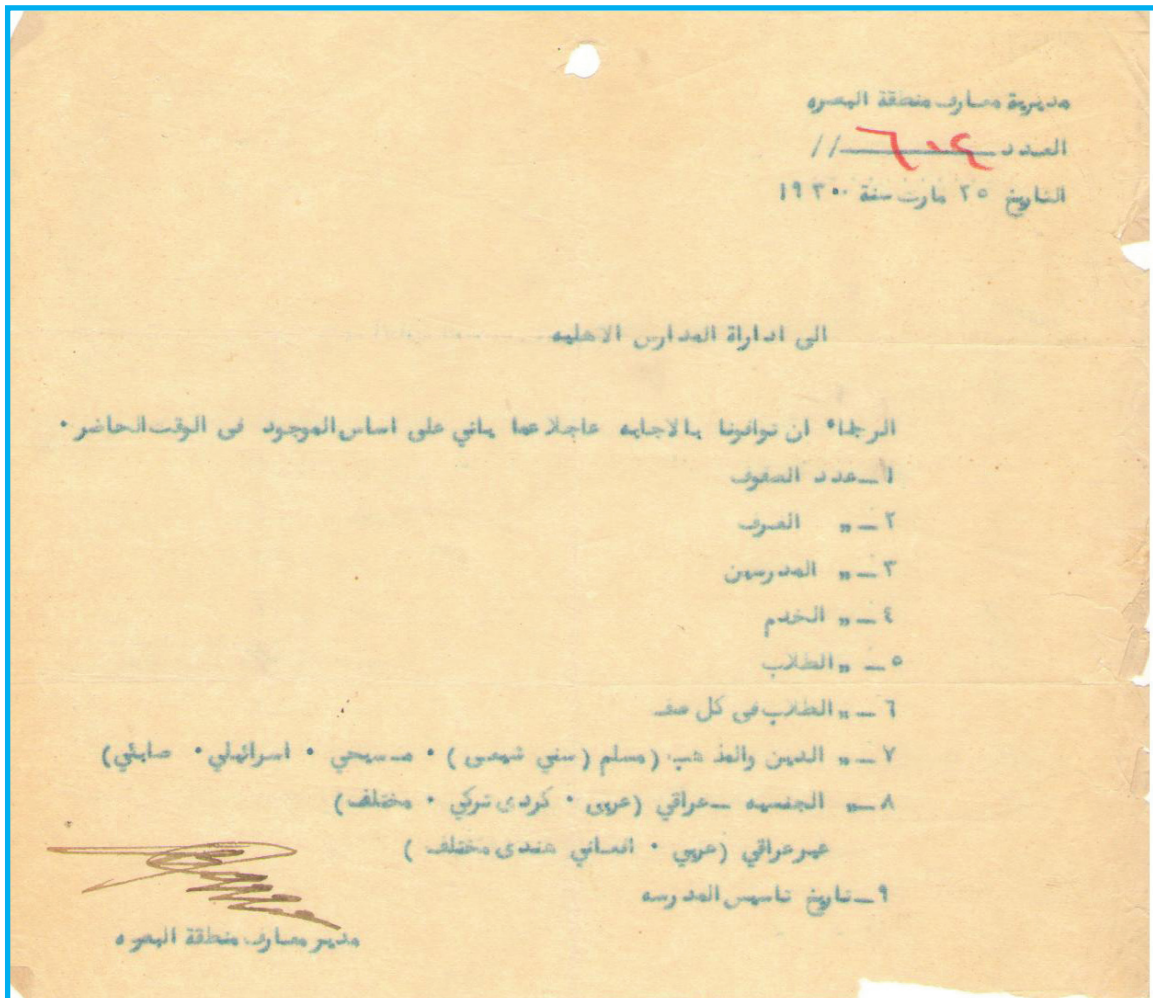 مديرية معارف منطقة البصره
العدد ٦٠٤ //
التاريخ ٢٥ مارت سنة ١٩٣٠
الى اداراة المدارس الاهليه
الرجاء ان توافونا بالاجابه عاجلا عما ياتي على اساس الموجود في الوقت الحاضر ٠
١ــ عدد الصفوف
٢ــ „ الغرف
٣ــ „ المدرسين
٤ــ „ الخدم
٥ــ „ الطلاب
٦ــ „ الطلاب في كل صف
٧ــ „ الدين والمذهب (مسلم (سني شيعي) ٠ مسيحي ٠ اسرائيلي ٠ صابئي)
٨ــ „ الجنسيه ــ عراقي (عربي ٠ كردي تركي ٠ مختلف)
غير عراقي (عربي ٠ افغاني هندي مختلف)
٩ــ تاريخ تاسيس المدرسه
مدير معارف منطقة البصره